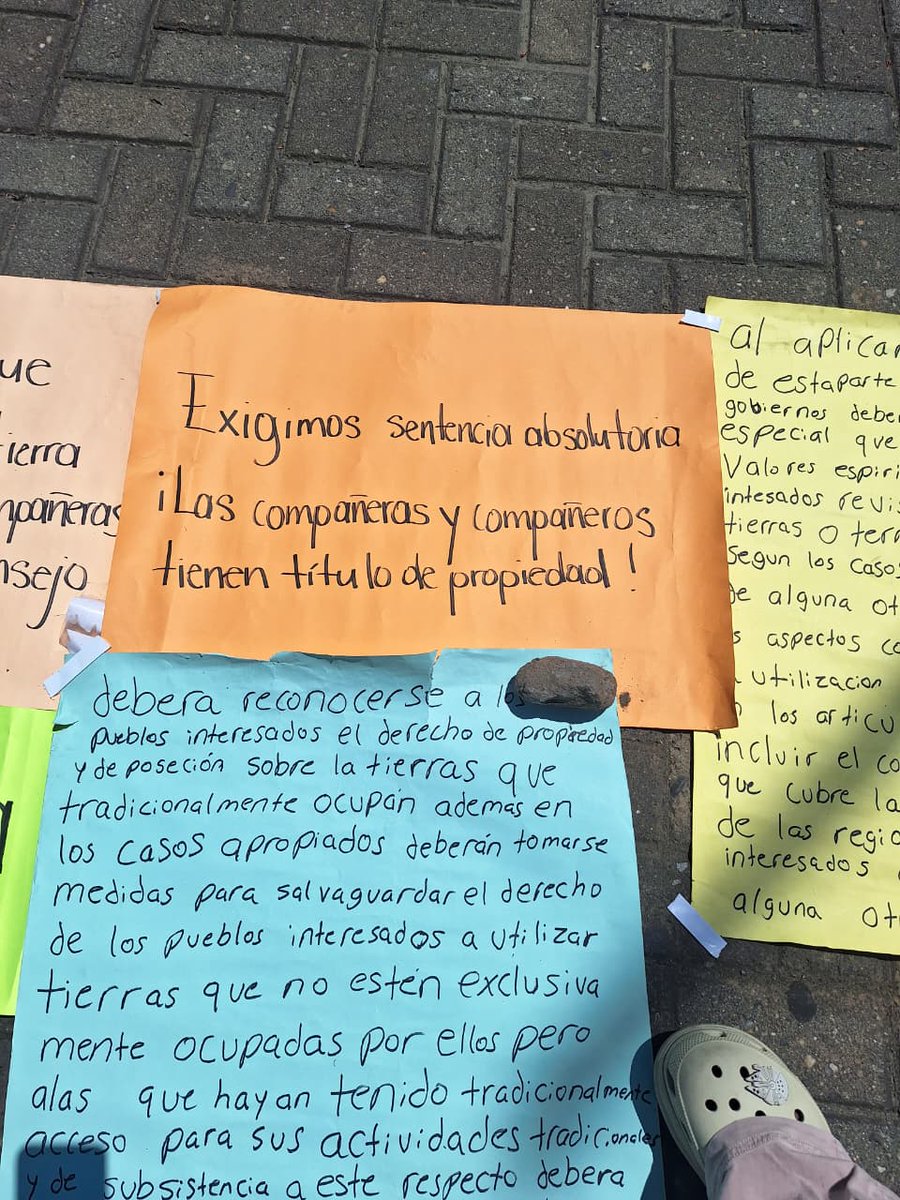 ue
ierra
mpañeras
nsejo
Exigimos sentencia absolutoria
¡Las compañeras y compañeros
tienen título de propiedad!
al aplicar
de estaparte
gobiernos deber
especial que
Valores espiri
intesados revis
tierras o terr
segun los casos
de alguna ot
s aspectos co
utilizacion
los articu
incluir el co
que cubre la
de las regio
interesados
alguna ot
debera reconocerse a los
pueblos interesados el derecho de propiedad
y de poseción sobre la tierras que
tradicionalmente ocupán además en
los casos apropiados deberán tomarse
medidas para salvaguardar el derecho
de los pueblos interesados a utilizar
tierras que no estén exclusiva
mente ocupadas por ellos pero
alas que hayan tenido tradicionalmente
acceso para sus actividades tradicionales
y de subsistencia a este respecto debera